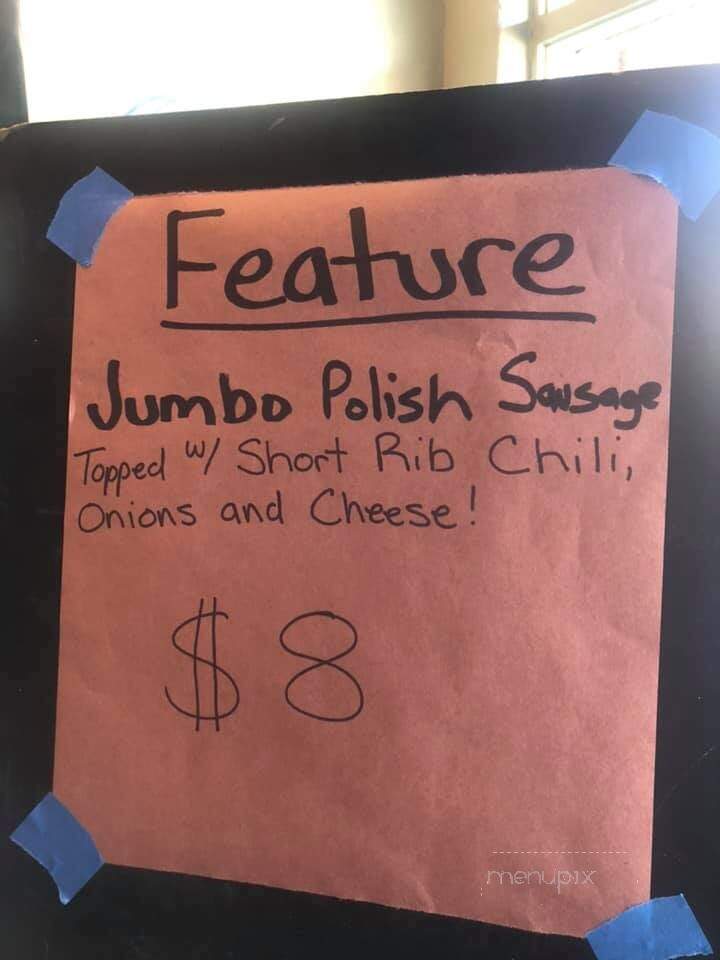 Feature
Jumbo Polish Sausage
Topped w/ Short Rib Chili,
Onions and Cheese!
$8
menupix